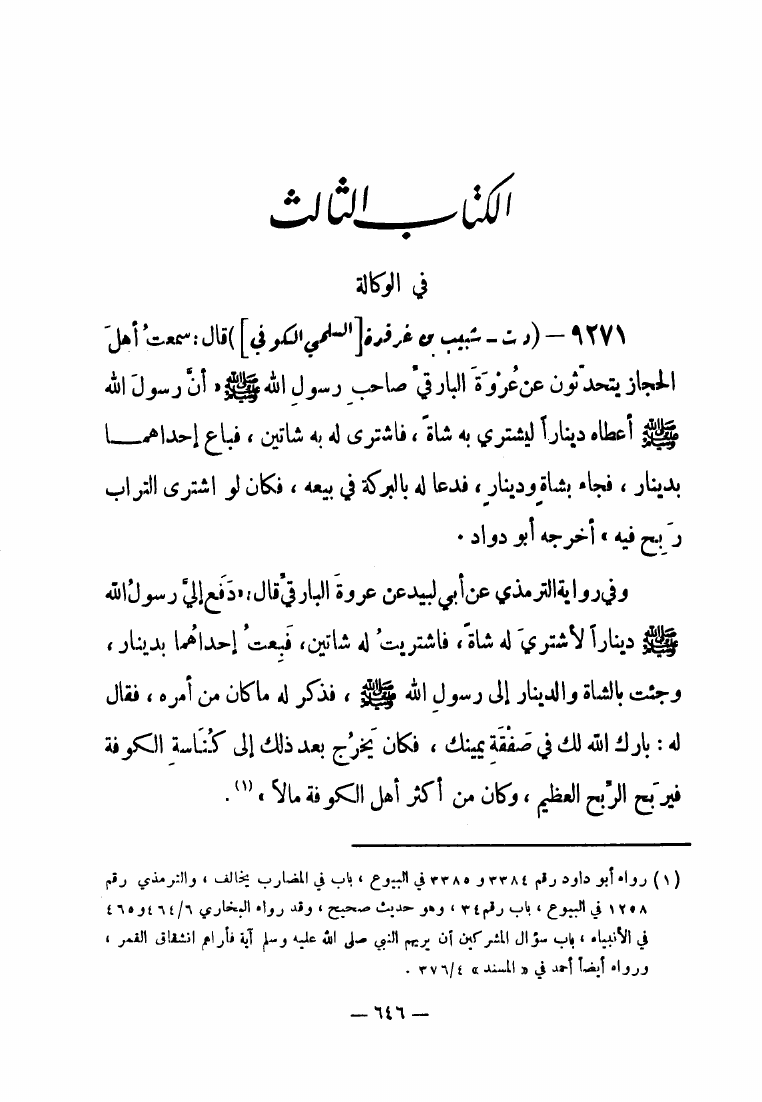 الكتاب الثالث
في الوكالة
٩٢٧١ – (د ت - شبيب بن غرقدة [السلمي الكوفي]) قال : سمعتُ أهلَ
الحجاز يتحدَّثون عن عُرْوَةَ البارقيِّ صاحبِ رسولِ الله ﷺ « أنَّ رسولَ الله
ﷺ أعطاه ديناراً ليشتري به شاةً ، فاشترى له به شاتين ، فباع إحداهمــا
بدينار ، فجاء بشاةٍ ودينارٍ ، فدعا له بالبركة في بيعه ، فكان لو اشترى التراب
رَبِح فيه » أخرجه أبو دواد .
وفي رواية الترمذي عن أبي لبيد عن عروةَ البارقيِّ قال : « دَفَع إليَّ رسولُ الله
ﷺ ديناراً لأشتريَ له شاةً ، فاشتريتُ له شاتين ، فَبِعتُ إحداهُما بدينار ،
وجئت بالشاة والدينار إلى رسولِ الله ﷺ ، فذكر له ماكان من أمره ، فقال
له : بارك الله لك في صَفْقَةِ يمينك ، فكان يَخرُج بعد ذلك إلى كُنَاسةِ الكوفة
فيربَح الرِّبح العظيم ، وكان من أكثر أهل الكوفة مالاً » (١) .
(١) رواه أبو داود رقم ٣٣٨٤ و ٣٣٨٥ في البيوع ، باب في المضارب يخالف ، والترمذي رقم
١٢٥٨ في البيوع ، باب رقم ٣٤ ، وهو حديث صحيح ، وقد رواه البخاري ٤٦٤/٦ و ٤٦٥
في الأنبياء ، باب سؤال المشركين أن يريهم النبي صلى الله عليه وسلم آية فأراهم انشقاق القمر ،
ورواه أيضاً أحمد في « المسند » ٣٧٦/٤ .
– ٦٤٦ –